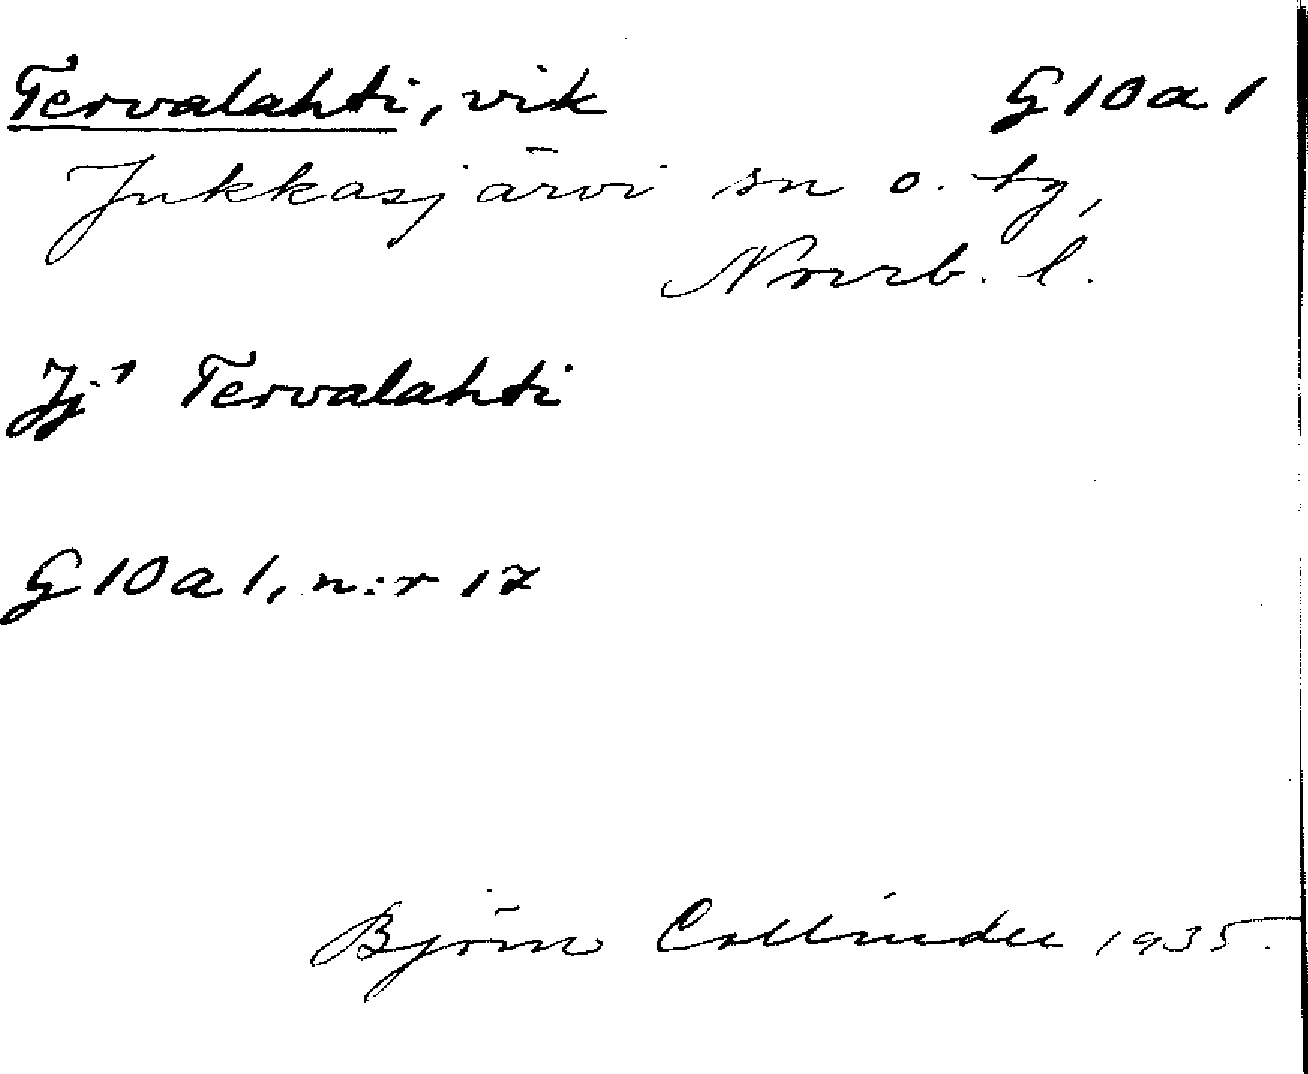 Tervalahti, vik G 10 a 1
Jukkasjärvi sn o. tg,
Norrb. l.
Jj¹ Tervalahti
G 10 a 1, n:r 17
Björn Collinder 1935.